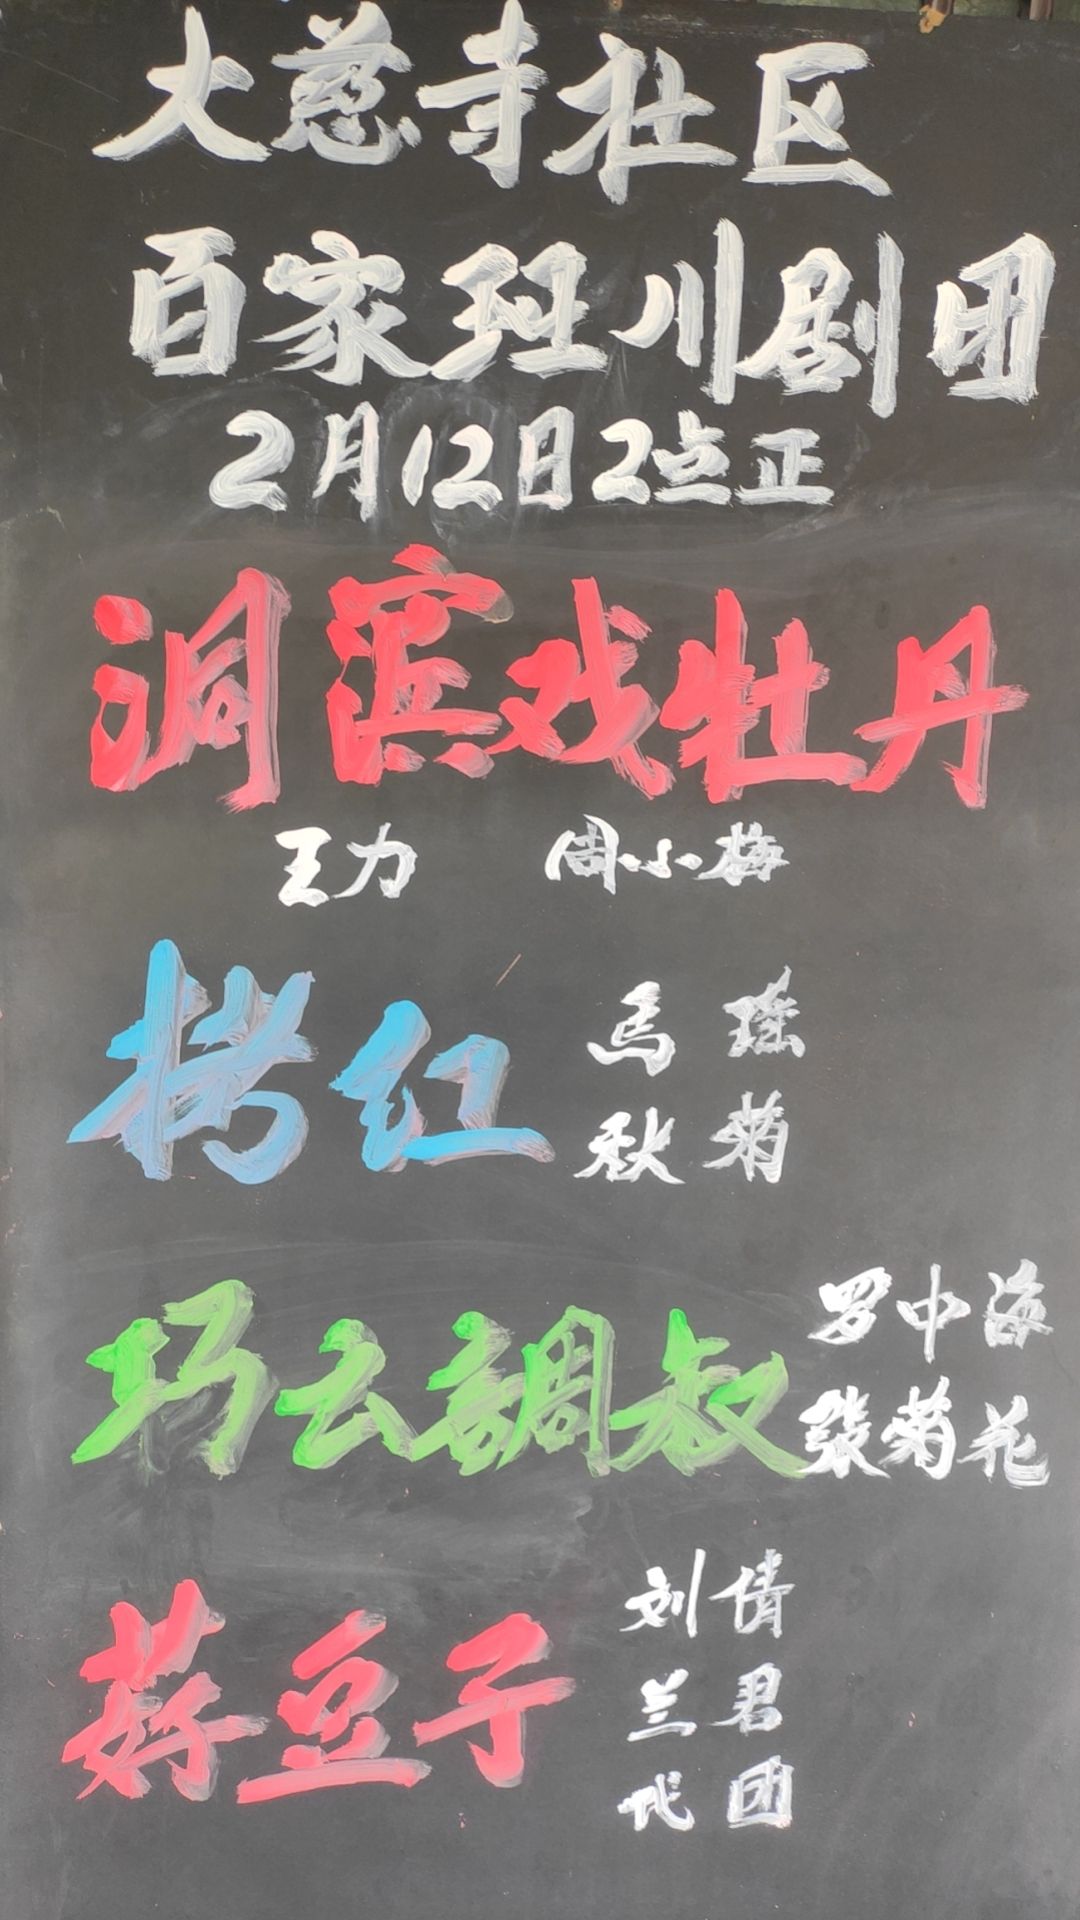 大慈寺社区
百家班川剧团
2月12日2点正
洞滨戏牡丹
王力 周小梅
拷红
马瑶
秋菊
巧云調叔
罗中海
張菊花
荞豆子
刘倩
兰君
代团